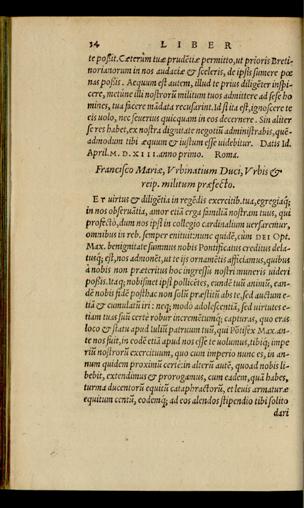 34 LIBER
te poßit. Cæterùm tuæ prudẽtiæ permitto, ut prioris Breti-
norianorum in nos audaciæ & sceleris, de ipsis sumere pœ
nas poßis. Aequum est autem, illud te prius diligẽter inspi-
cere, metúne illi nostrorũ militum tuos admittere ad sese ho
mines, tua facere mãdata recusarint. Id si ita est, ignoscere te
eis uolo, nec seuerius quicquam in eos decernere. Sin aliter
se res habet, ex nostra dignitate negotiũ administrabis, quẽ-
admodum tibi æquum & iustum esse uidebitur. Datis Id.
April. M. D. XIIII. anno primo. Roma.
Francisco Mariæ, Vrbinatium Duci, Vrbis &
reip. militum præfecto.
ET uirtus & diligẽtia in regẽdis exercitib. tua, egregiaq́;
in nos obseruãtia, amor etiã erga familiã nostram tuus, qui
profectò, dum nos ipsi in collegio cardinalium uersaremur,
omnibus in reb. semper enituit: nunc quidẽ, cùm DEI Opt.
Max. benignitate summus nobis Pontificatus creditus dela-
tusq́; est, nos admonẽt, ut te ijs ornamẽtis afficiamus, quibus
à nobis non præteritus hoc ingressu nostri muneris uideri
poßis. Itaq; nobismet ipsi polliciti, eundẽ tuũ animũ, ean-
dẽ nobis fidẽ posthac non solũ præstitũ abs te, sed auctum e-
tiã & cumulatũ iri: neq; modò adolescentiã, sed uirtutes e-
tiam tuas suũ certè robur incremẽtumq́; capturas, quo eras
loco & statu apud Iuliũ patruum tuũ, qui Põtifex Max. an-
te nos fuit, in eodẽ etiã apud nos esse te uolumus, tibiq́; impe
riũ nostrorũ exercituum, quo cum imperio nunc es, in an-
num quidem proximũ certè: in alterũ autẽ, quoad nobis li-
bebit, extendimus & prorogamus, cum eadem, quã habes,
turma ducentorũ equitũ cataphractorũ, et leuis armaturæ
equitum centũ, eodemq́; ad eos alendos stipendio tibi solito
dari